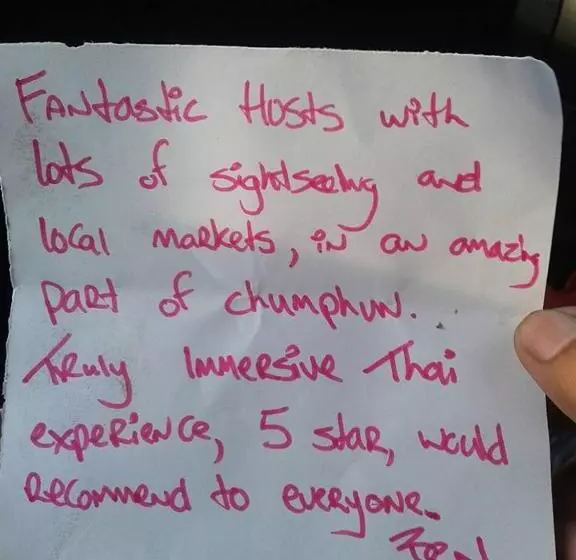 Fantastic Hosts with
lots of sightseeing and
local markets, in an amazing
part of chumphun.
Truly Immersive Thai
experience, 5 star, would
recommend to everyone.